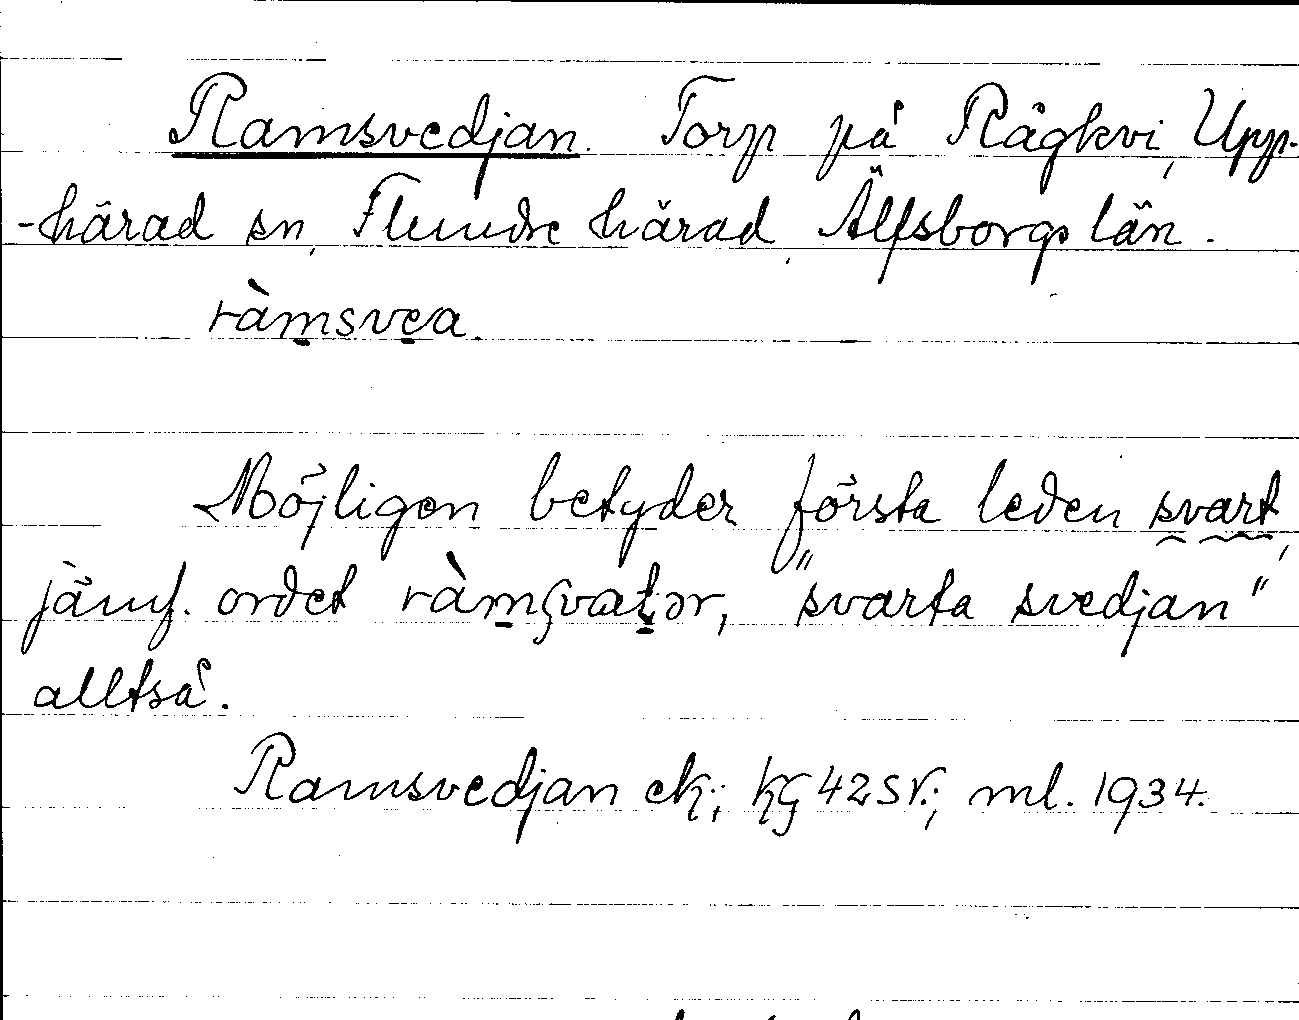 Ramsvedjan. Torp på Rågkvi, Upp-
-härad sn, Flundre härad, Älfsborgs län.
ràmsvea.
Möjligen betyder första leden svart,
jämf. ordet ràmsvatər, "svarta svedjan"
alltså.
Ramsvedjan ek; kG 42 SV.; ml. 1934.